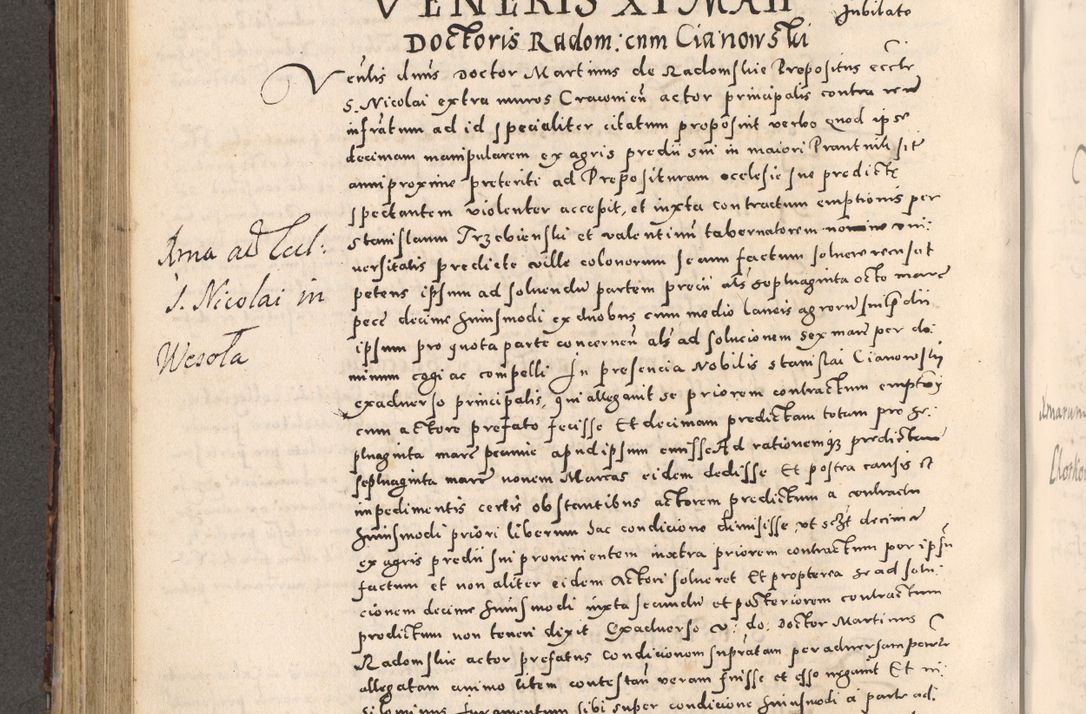 VENERIS XI MAII
Jubilato
Doctoris Radom: cum Cianowski
Venlis dnus Doctor Martinus de Radomskie Propositus eccle
S. Nicolai extra muros Cracouien actor principalis contra
infratum ad id specialiter citatum proposuit verbo quod ipse
decimam manipularem ex agris predii sui in maiori Prantnik site
anni proxime preteriti ad Preposituram ecclesie sue predicte
spectantem violenter accepit, et iuxta contractum emptionis per
Stanislaum Trzebienski et valentinu tabernatorem nomine vni:
versitatis predicte ville colonorum secum factum soluere recusat
petens ipsum ad soluendu partem precii als soptuaginta octo marc
pecc decime huiusmodi ex duobus cum medio laneis agroru sui pdii
ipsum pro quota parte concernen als ad solucionem sex marc per do:
minum cogi ac compelli In presencia Nobilis Stanislai Cianowskij
exaduerso principalis, qui allegauit se priorem contractum emptōij
cum actore prefato fecisse Et decimam predictam totam pro se:
ptuaginta marc pecunie apud ipsum emisse Ad rationemq predictarum
septuaginta marc nouem Marcas eidem dedisse Et postea causis et
impedimentis certis obstantibus actorem predictum a contractu
huiusmodi priori liberum hac condicione dimisisse, vt sczt decimam
ex agris predii sui prouenientem iuxtra priorem contractum per ipsu
factum et non aliter eidem Actori solueret Et propterea se ad solu:
cionem decime huiusmodi iuxta secundu et posteriorem contractum
predictum non teneri dixit Exaduerso v: do: Doctor Martinus
Radomskie actor prefatus condicionem supratam per aduersam partem
allegatam animo litem contestan veram fuisse et esse negauit Et ni:
hilominus Juramentum sibi super condicione huiusmodi a parte ad:
Ama ad Eccl:
S. Nicolai in
Wesoła